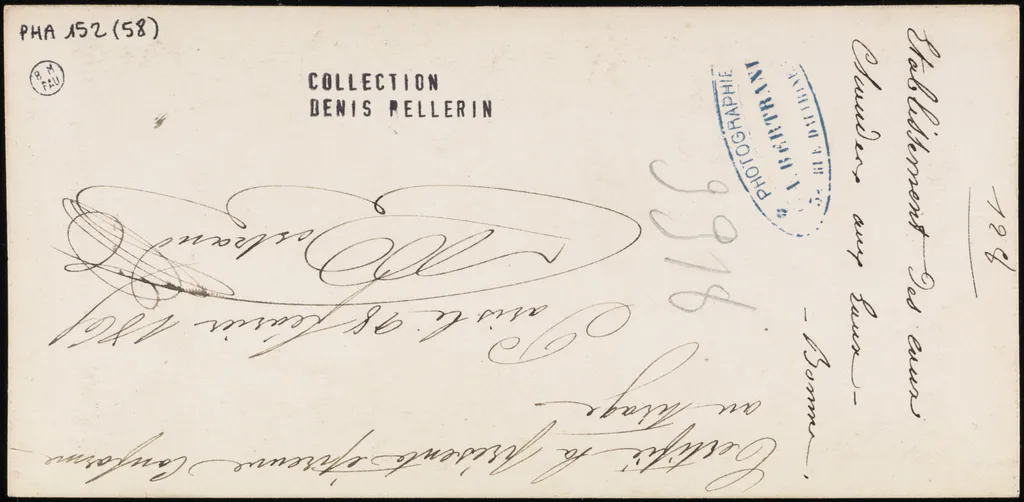 PHA 152 (58)
B M
FAU
COLLECTION
DENIS PELLERIN
PHOTOGRAPHIE
A. BERTRAND
Etablissement des eaux
Chaudes aux Eaux-
- Bonnes.
Certifié la présente épreuve Conforme
au tirage
Paris le 28 février 1861
Bertrand